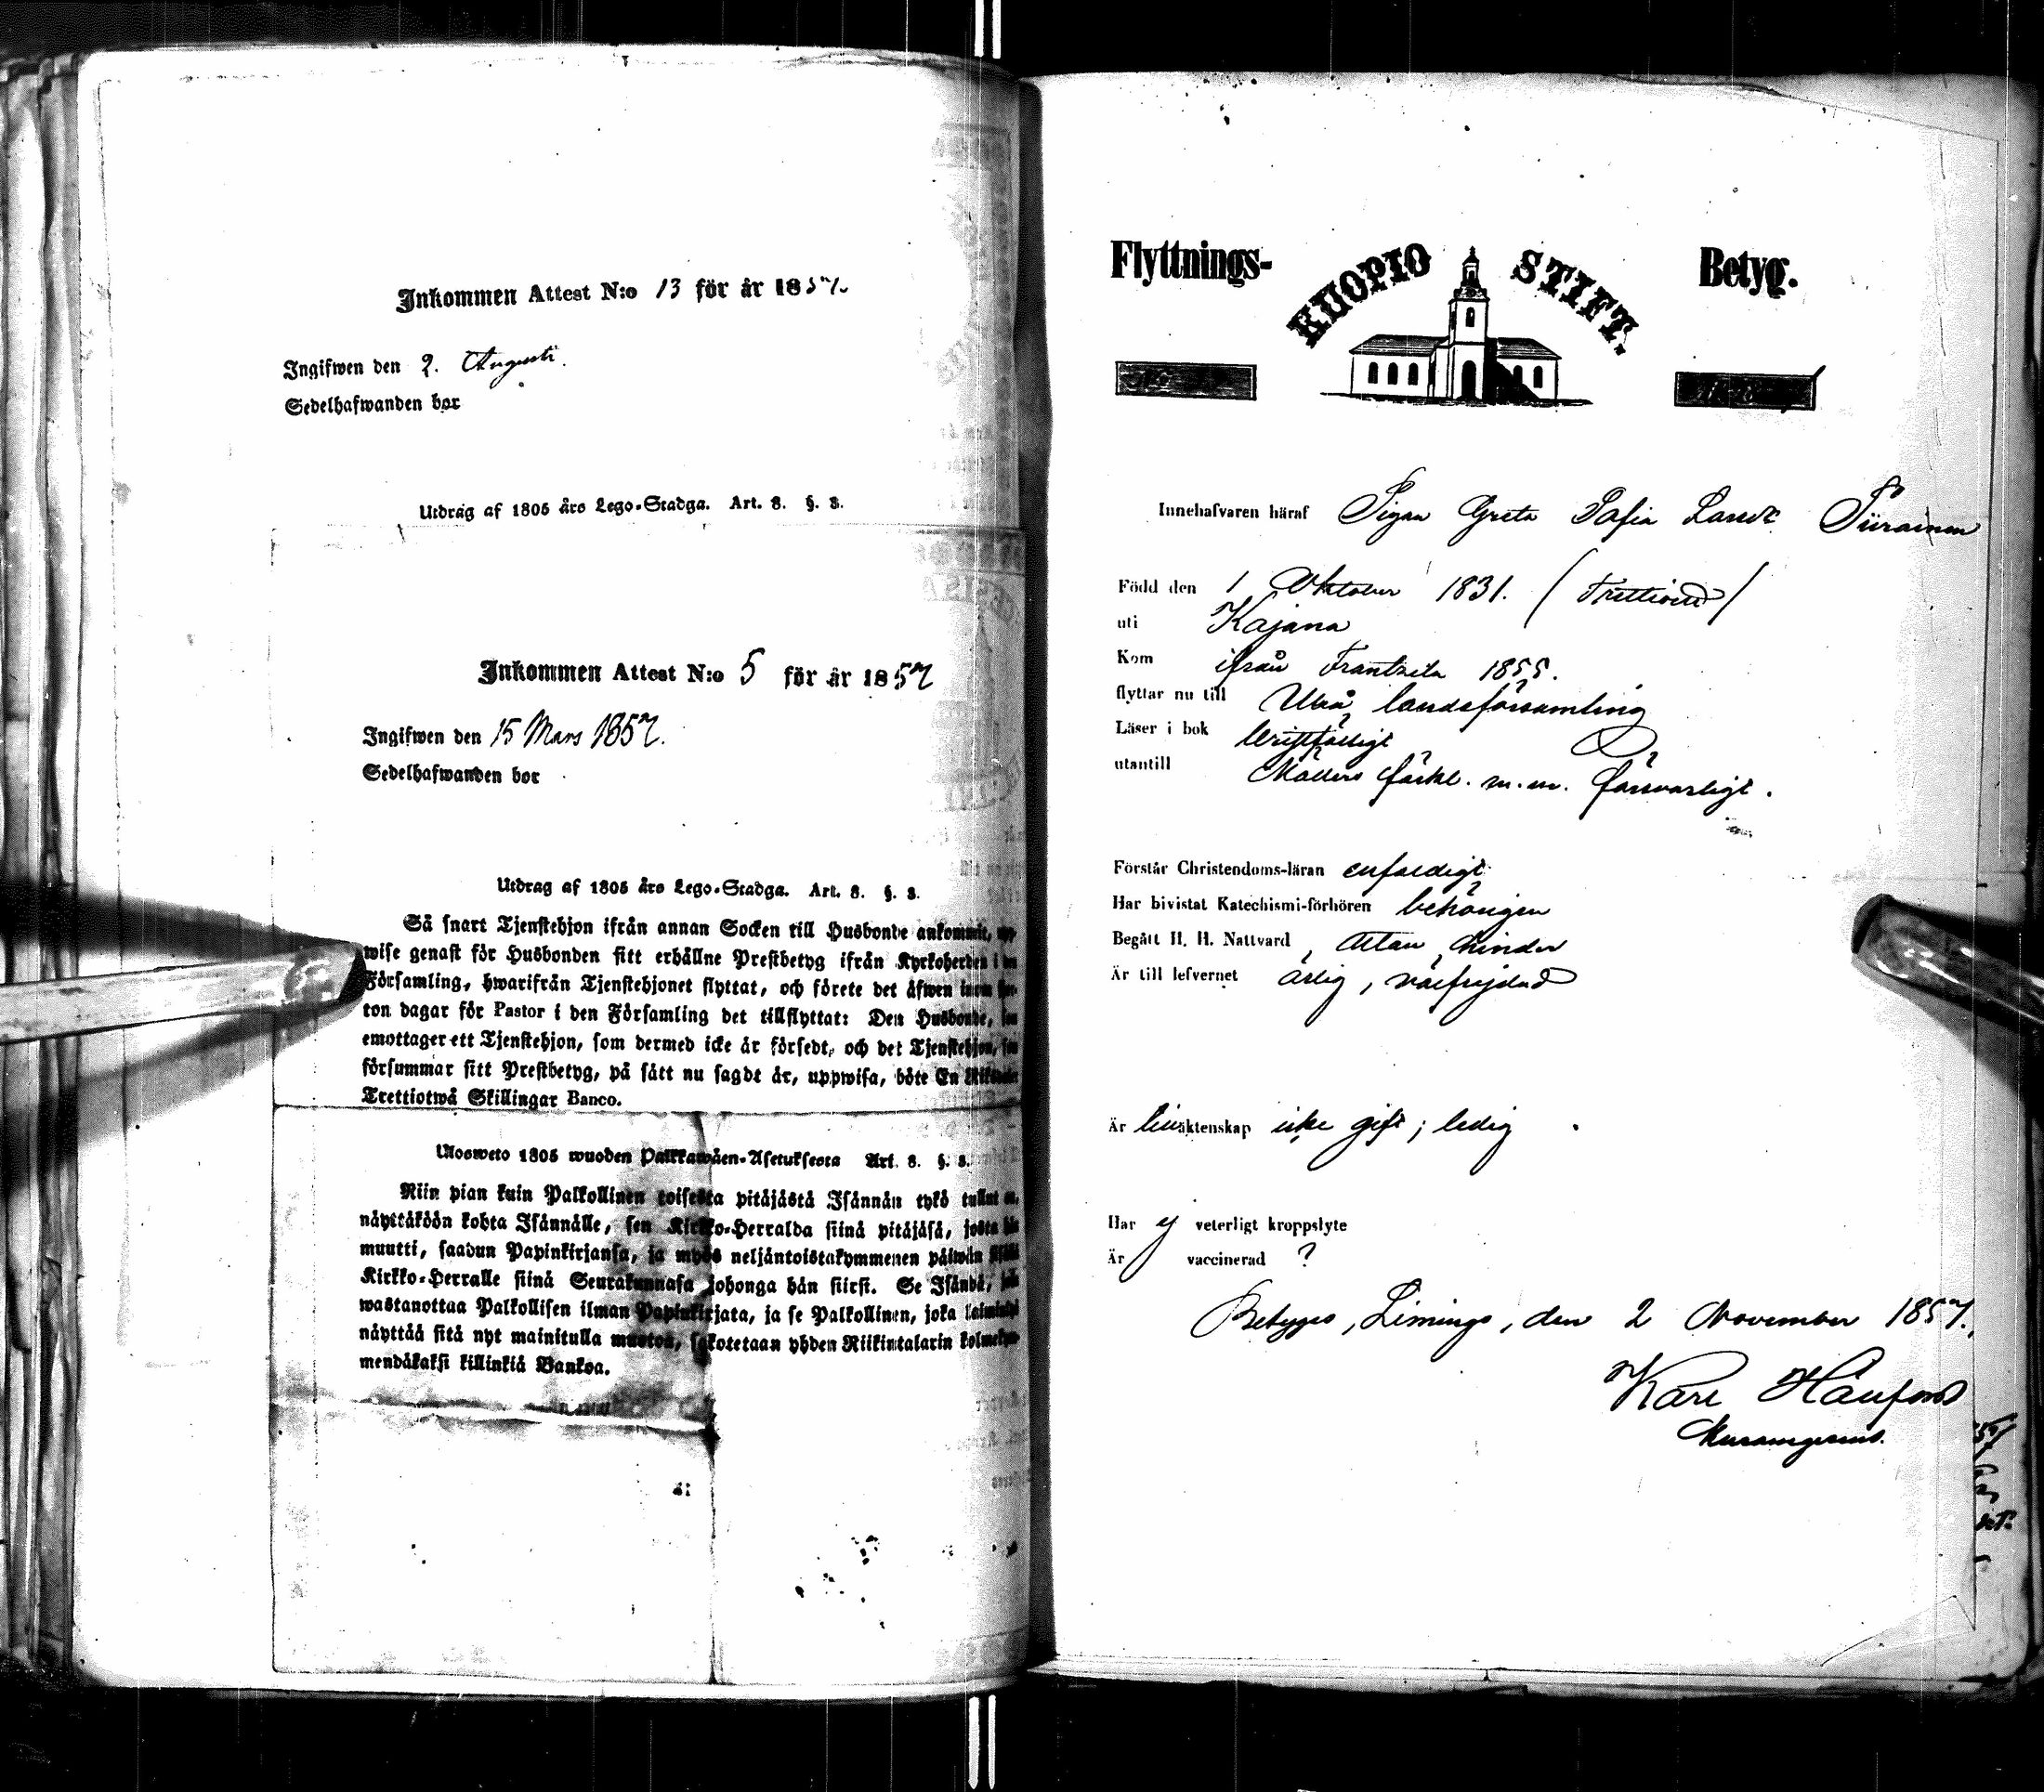 Inkommen Attest N:o 13 för år 1857.
Ingifwen den 2. Augusti.
Sedelhafwanden bor
Utdrag af 1805 års Lego-Stadga. Art. 8. §. 3.
Inkommen Attest N:o 5 för år 1857
Ingifwen den 15 Mars 1857.
Sedelhafwanden bor
Utdrag af 1805 års Lego-Stadga. Art. 8. §. 3.
Så snart Tjenstehjon ifrån annan Socken till Husbonde ankommit,
wise genast för Husbonden sitt erhållne Prestbetyg ifrån Kyrkoherden i
Församling, hwarifrån Tjenstehjonet flyttat, och förete det äfwen inom
ton dagar för Pastor i den Församling det tillflyttat: Den Husbonde,
emottager ett Tjenstehjon, som dermed icke är försedt, och det Tjenstehjon,
försummar sitt Prestbetyg, på sätt nu sagdt är, uppwisa, böte En
Trettiotwå Skillingar Banco.
Ulosweto 1805 wuoden Palkkawäen-Asetuksesta Art. 8. §. 3.
Niin pian kuin Palkollinen toisesta pitäjästä Isännän tykö tullut on,
näyttäköön kohta Isännälle, sen Kirkko-Herralda siinä pitäjäsä, josta
muutti, saadun Papinkirjansa, ja myös neljäntoistakymmenen päiwän
Kirkko-Herralle siinä Seurakunnasa johonga hän siirst. Se Isändä,
wastanottaa Palkollisen ilman Papinkirjata, ja se Palkollinen, joka
näyttää sitä nyt mainitulla muotoa, sakotetaan yhden Riikintalarin
mendäkaksi killinkiä Bankoa.
Flyttnings- KUOPIO STIFT. Betyg.
Innehafvaren häraf Pigan Greta Sofia Tiirainen
Född den 1 Oktober 1831. (Trettioett)
uti Kajana
Kom ifrån Frantzila 1855.
flyttar nu till Uleå landsförsamling
Läser i bok
utantill förkl. m.m. försvarligt.
Förstår Christendoms-läran enfaldigt
Har bivistat Katechismi-förhören behörigen
Begått H. H. Nattvard, utan hinder
Är till lefvernet ärlig, välfrejdad
Är äktenskap icke gift; ledig
Har ej veterligt kroppslyte
Är vaccinerad ?
Betygas, Limingo, den 2 November 1857.
Karl